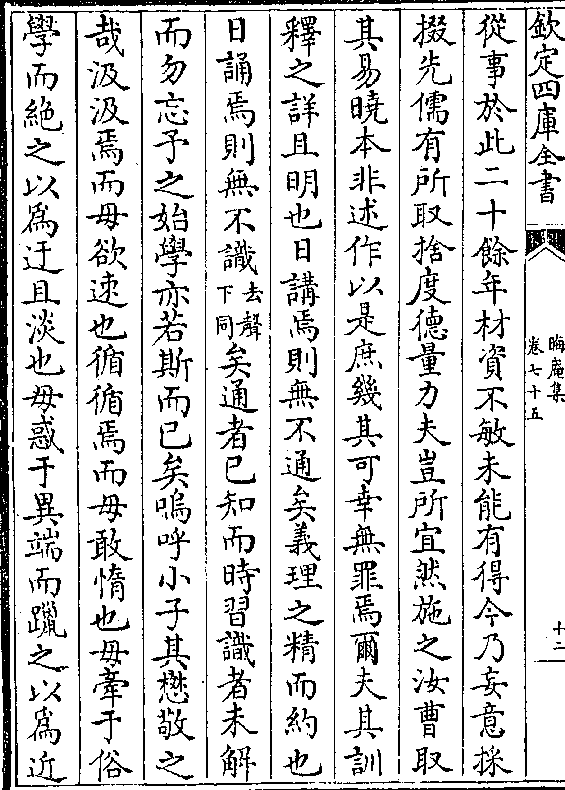 欽定四庫全書
晦庵集
卷七十五
十二
從事於此二十餘年材資不敏未能有得今乃妄意採
掇先儒有所取捨度德量力夫豈所宜然施之汝曹取
其易曉本非述作以是庶幾其可幸無罪焉爾夫其訓
釋之詳且明也日講焉則無不通矣義理之精而約也
日誦焉則無不識去聲下同矣通者已知而時習識者未解
而勿忘予之始學亦若斯而已矣嗚呼小子其懋敬之
哉汲汲焉而毋欲速也循循焉而毋敢惰也毋牽于俗
學而絶之以為迂且淡也毋惑于異端而躐之以為近